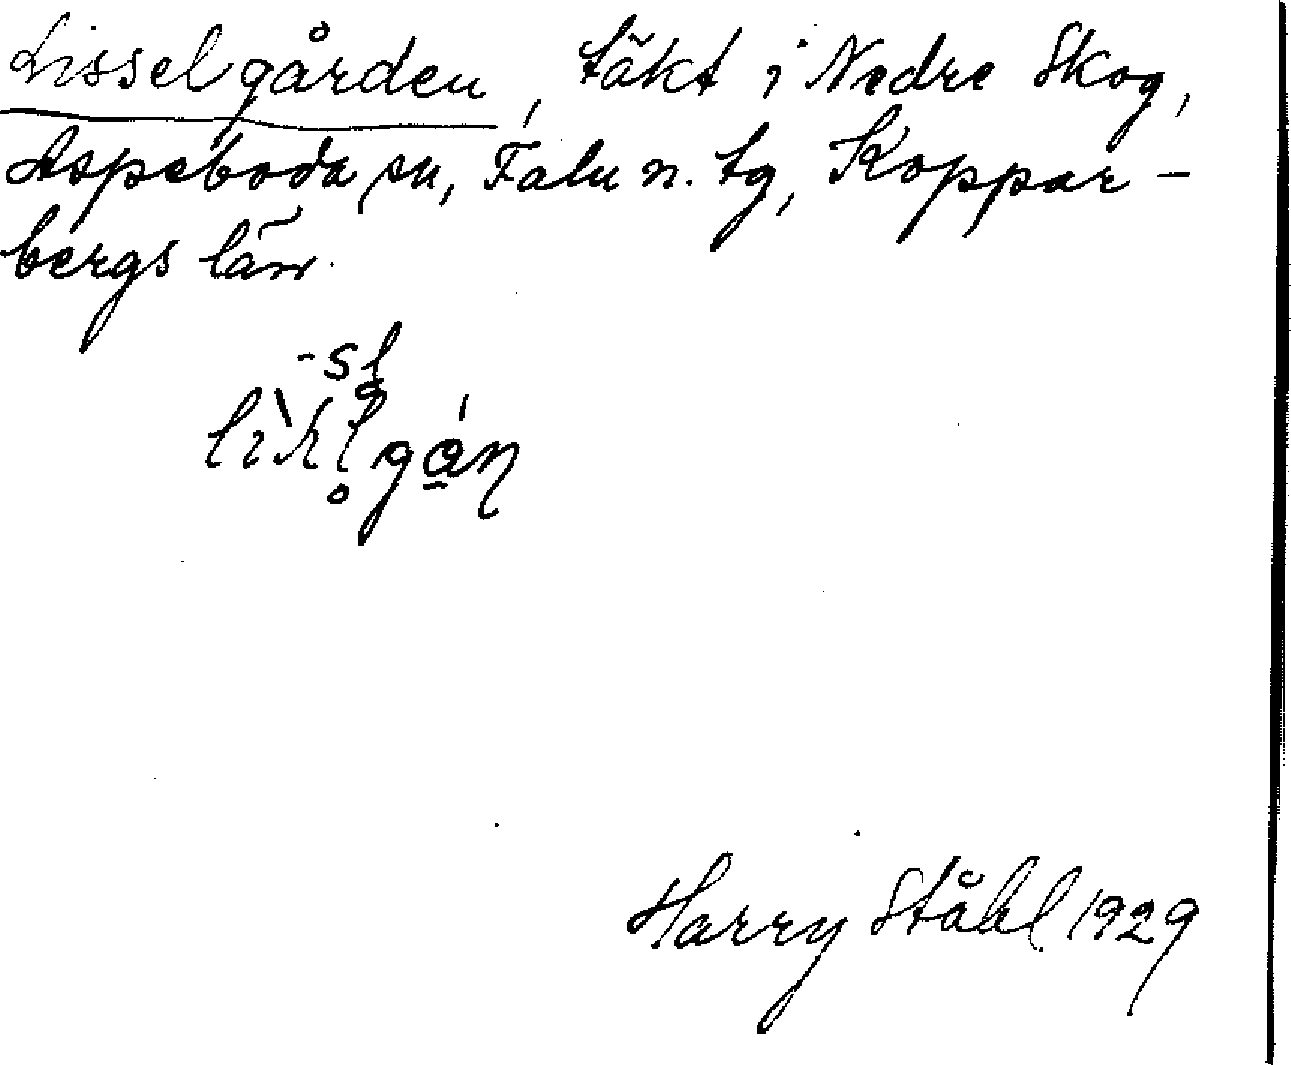 Lisselgården, täkt i Nedre Skog,
Aspeboda sn, Falu n. tg, Koppar-
bergs län.
Harry Ståhl 1929